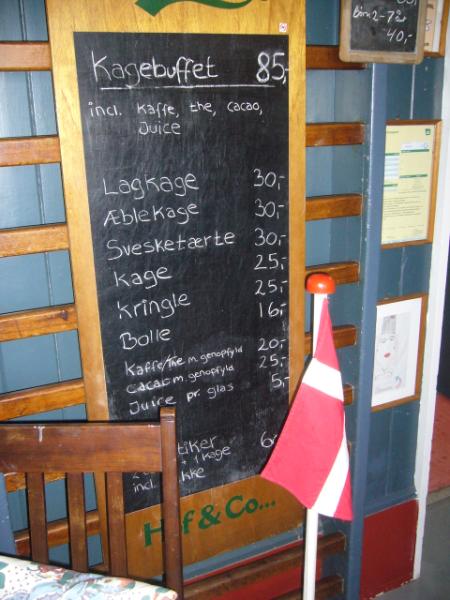 Kagebuffet 85,-
incl. Kaffe, the, cacao,
Juice
Lagkage 30,-
Æblekage 30,-
Svesketærte 30,-
Kage 25,-
Kringle 25,-
Bolle 16,-
Kaffe/The m. genopfyld 20,-
cacao m. genopfyld 25,-
Juice pr. glas 5,-
kage
incl.
& Co...
Børn 2-7 år
40,-